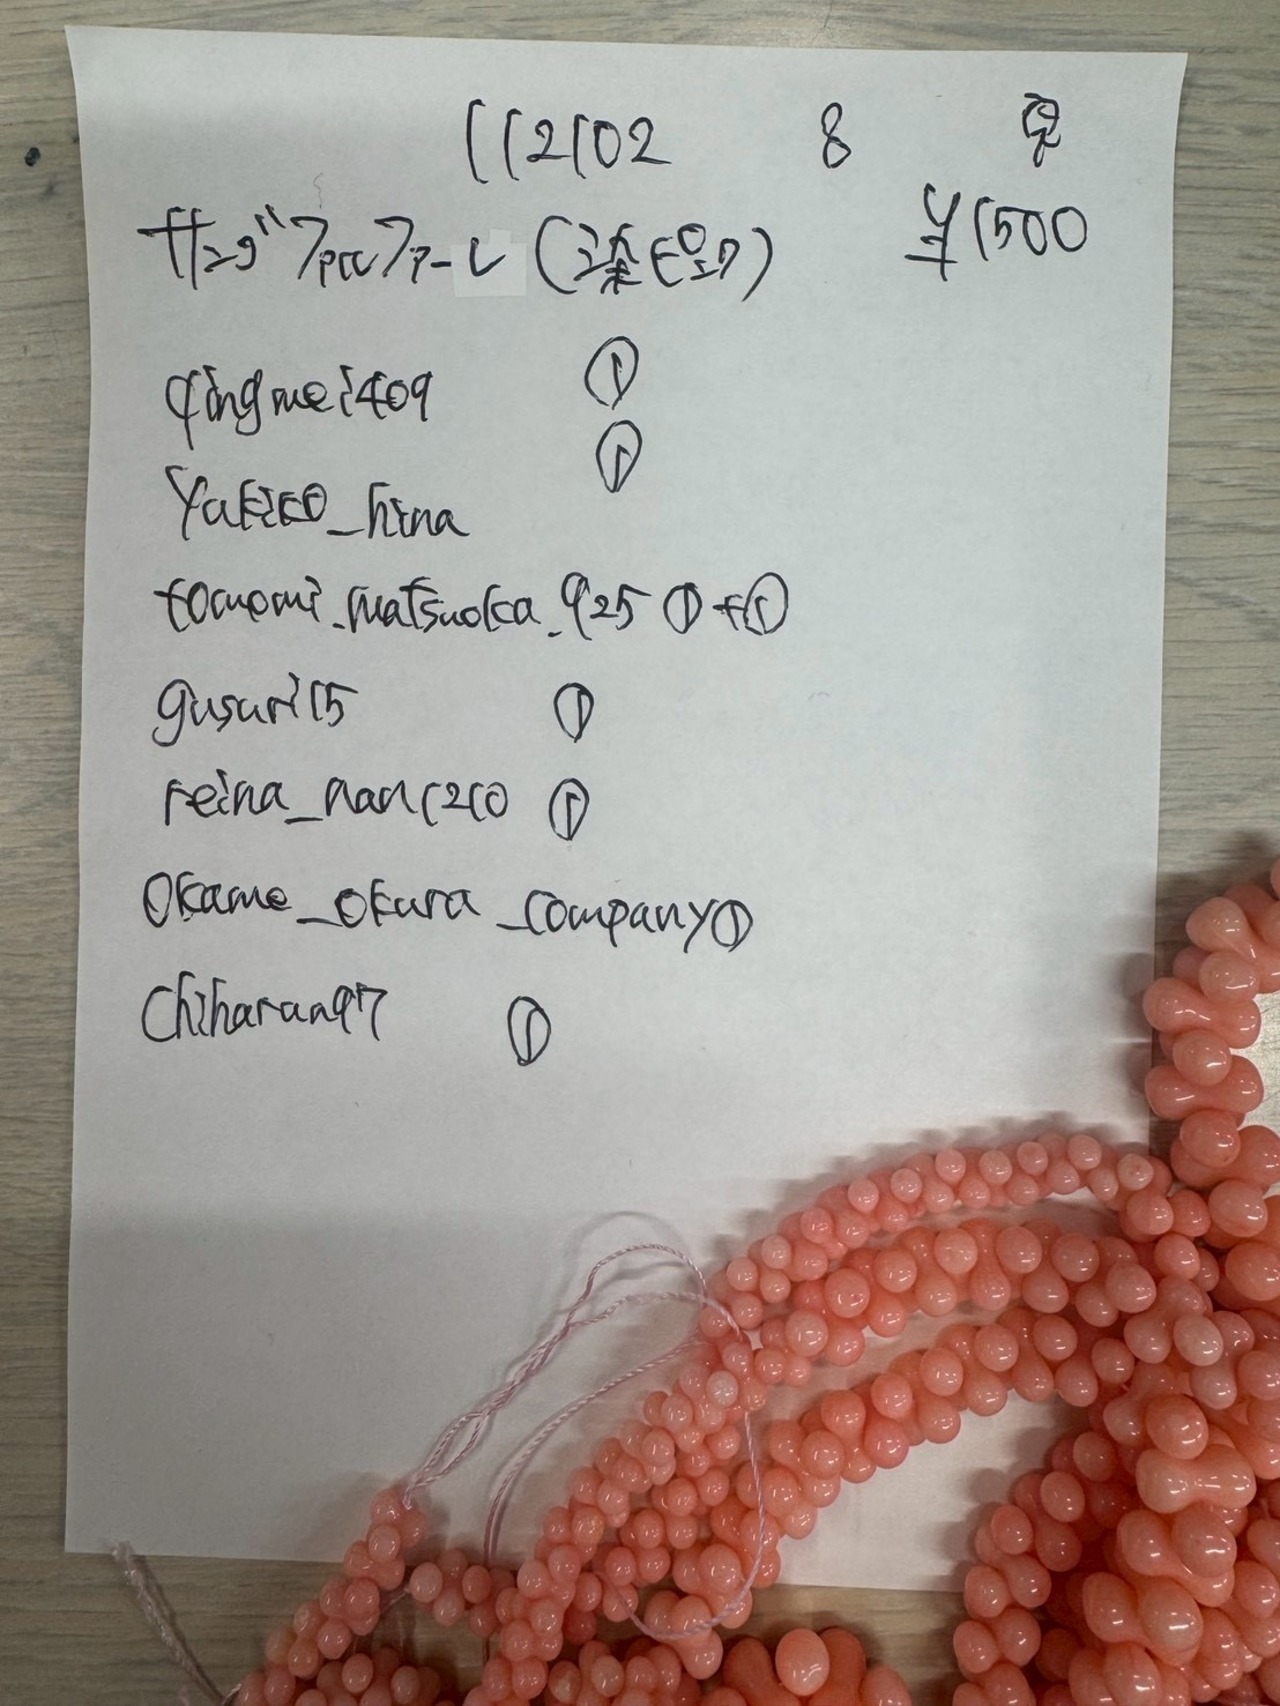 112102 8
¥1500
qingmei409 ①
yakiko_hina ①
tomomi_matsuoka_925 ①+①
gusuri15 ①
reina_nan1210 ①
okame_okura_company ①
chiharan97 ①